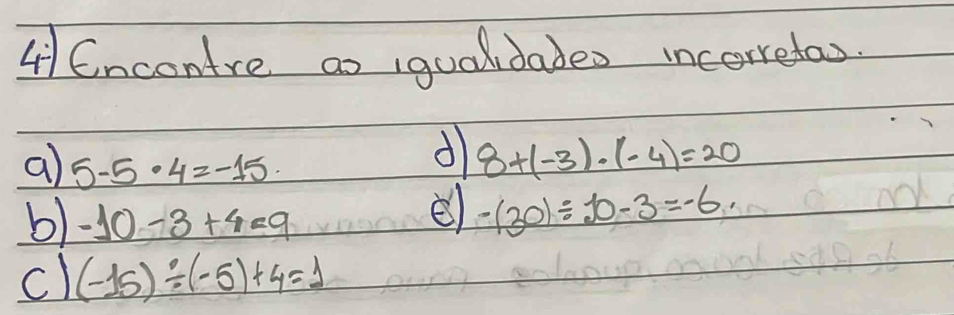 4-) Encontre as igualidades incorretas.
a) 5-5 • 4 = -15.
b) -10 - 3 + 4 = 9
c) (-15) ÷ (-5) + 4 = 1
d) 8 + (-3) • (-4) = 20
e) -(30) ÷ 10 - 3 = -6.